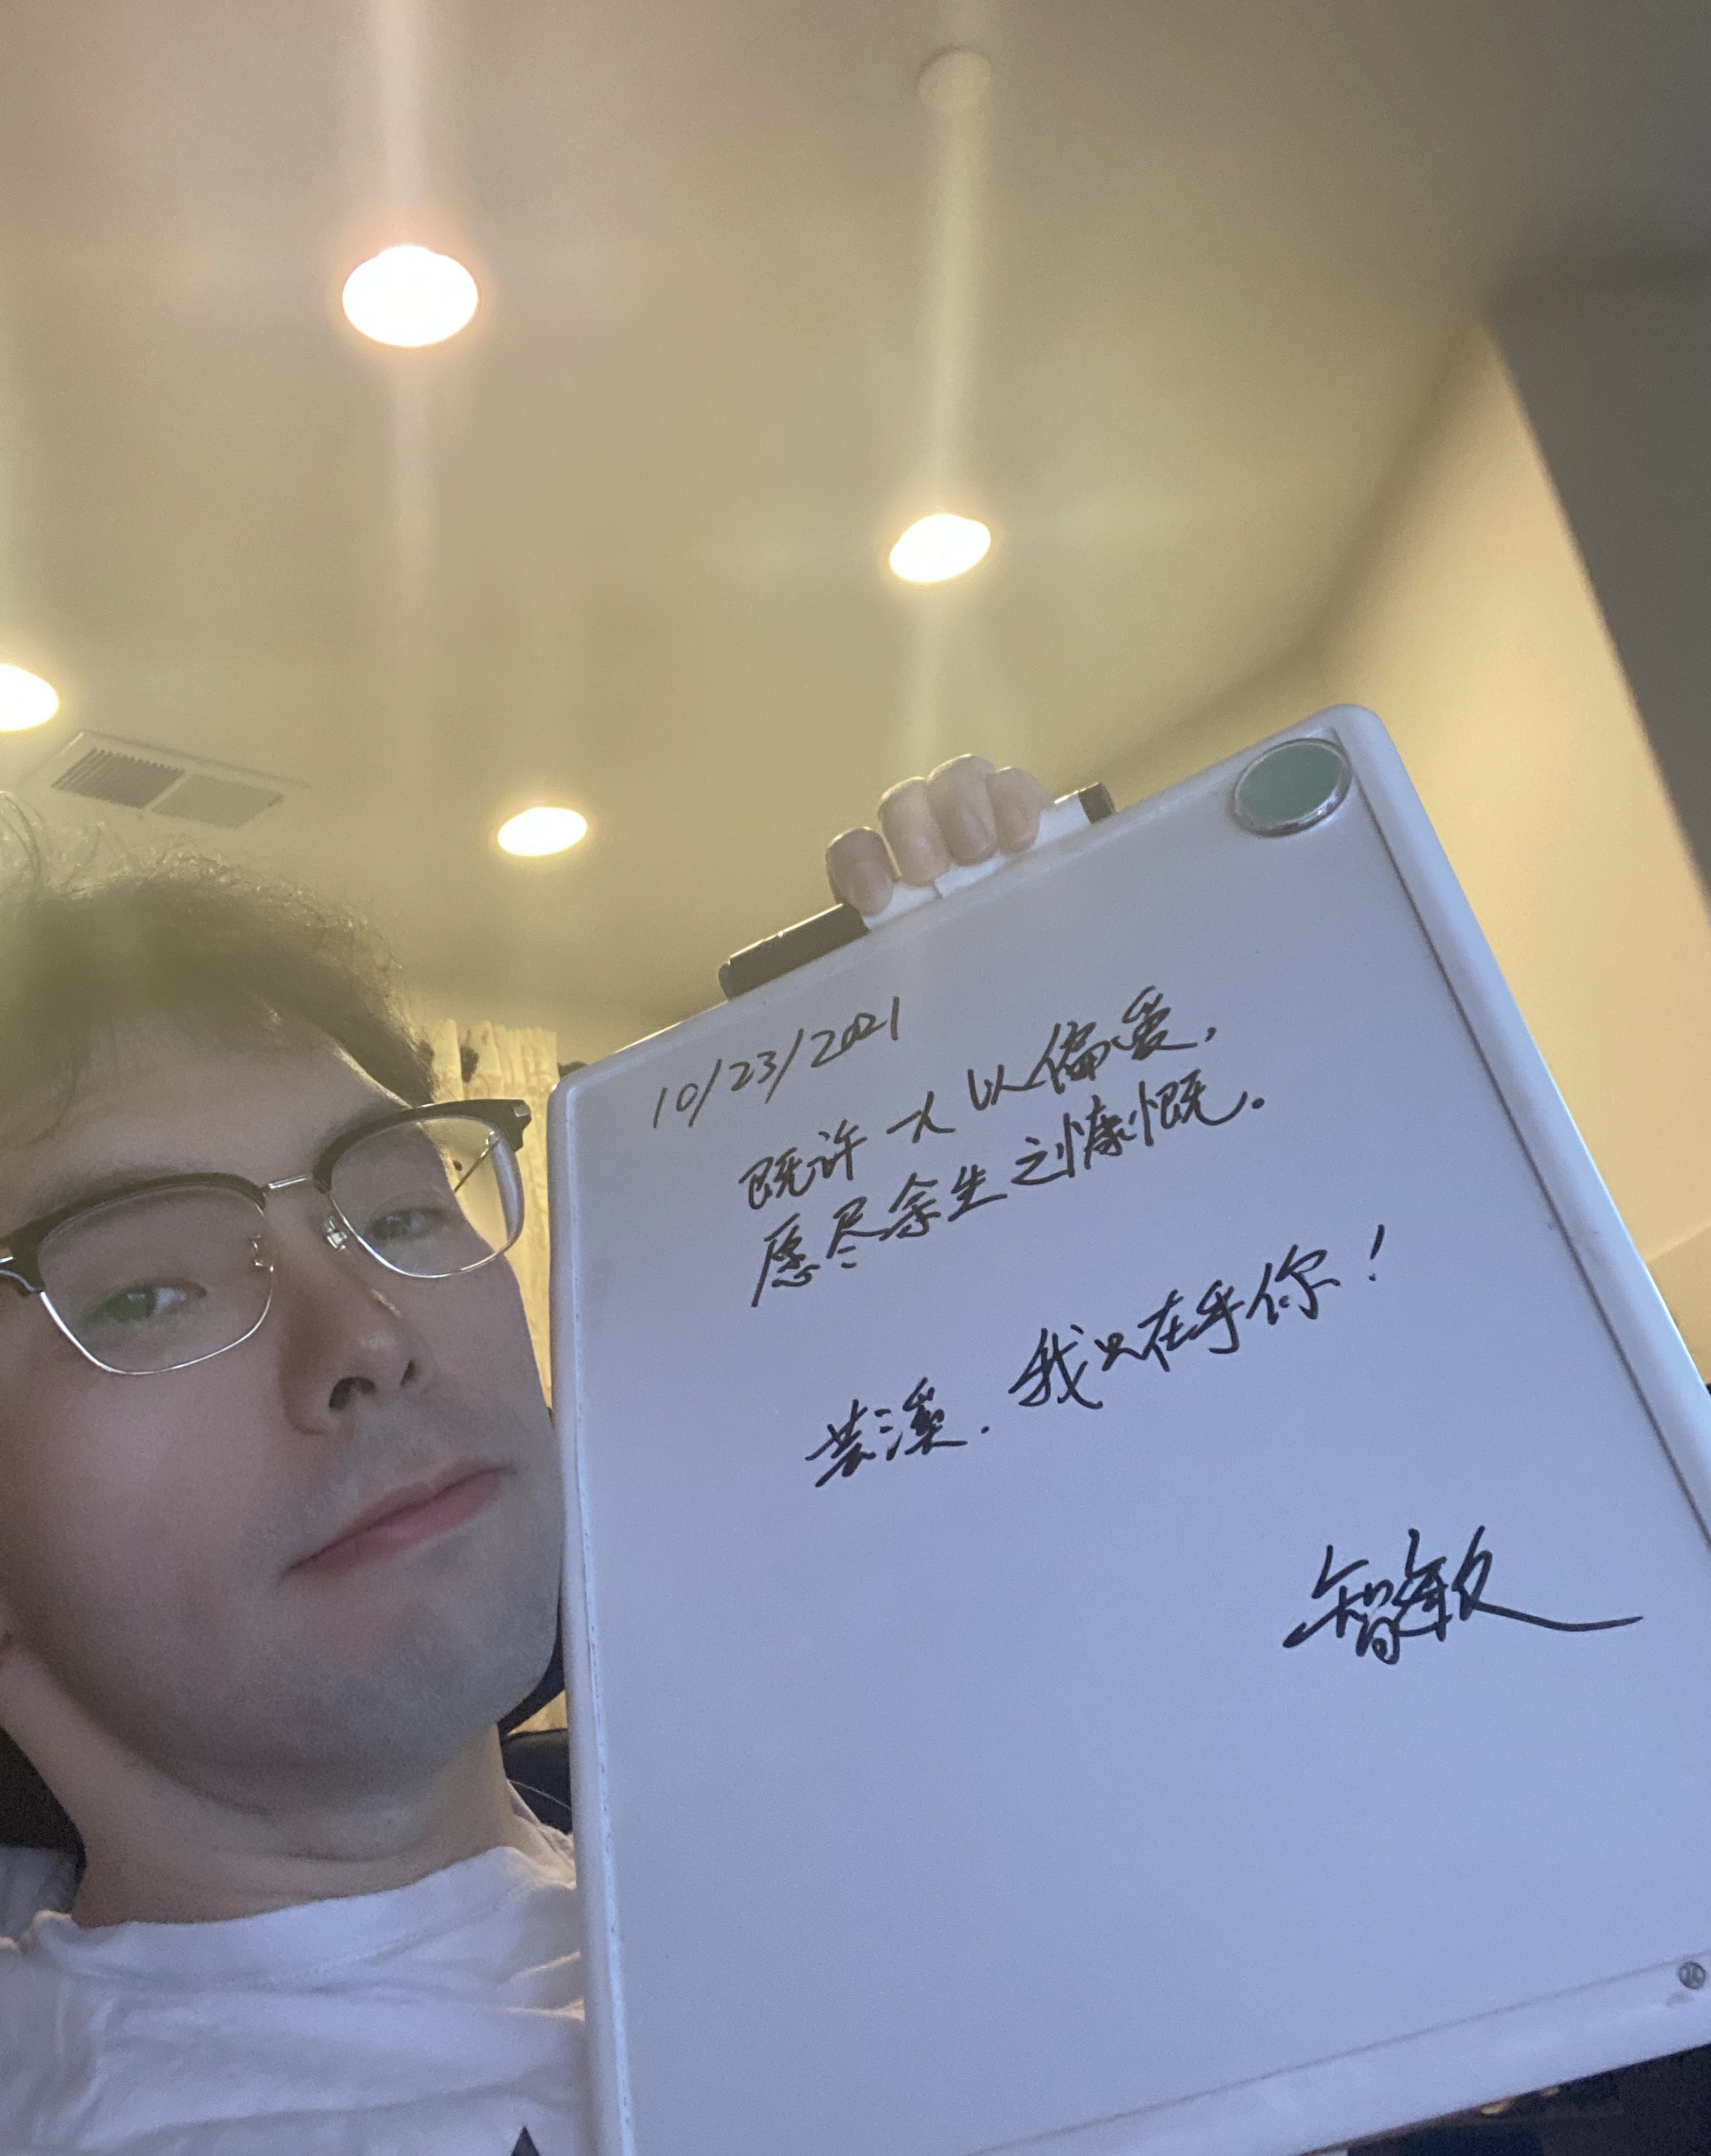 10/23/2021
既许一人以偏爱，
愿尽余生之慷慨。
芸溪，我只在乎你！
智敏